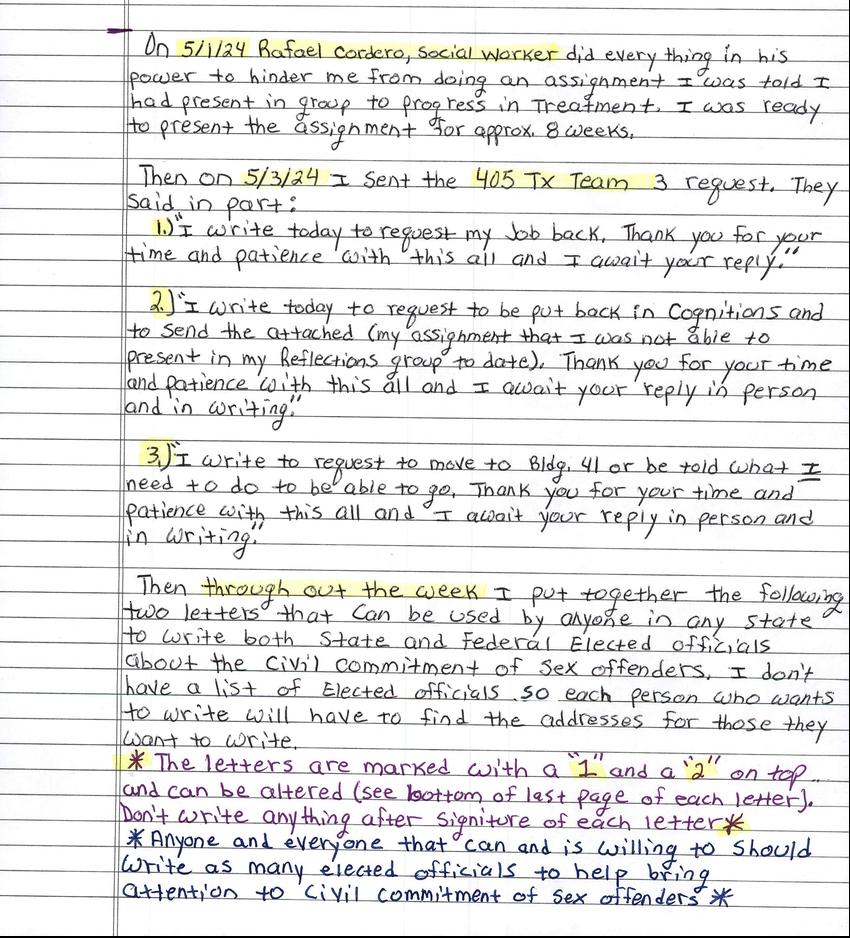 On 5/1/24 Rafael Cordero, Social Worker did every thing in his
power to hinder me from doing an assignment I was told I
had present in group to progress in Treatment. I was ready
to present the assignment for approx. 8 weeks.
Then on 5/3/24 I sent the 405 Tx Team 3 request. They
said in part:
1.) "I write today to request my Job back. Thank you for your
time and patience with this all and I await your reply."
2.) "I write today to request to be put back in Cognitions and
to send the attached (my assignment that I was not able to
present in my Reflections group to date). Thank you for your time
and patience with this all and I await your reply in person
and in writing."
3.) "I write to request to move to Bldg. 41 or be told what I
need to do to be able to go. Thank you for your time and
patience with this all and I await your reply in person and
in writing."
Then through out the week I put together the following
two letters that can be used by anyone in any State
to write both State and Federal Elected officials
about the Civil commitment of Sex offenders. I don't
have a list of Elected officials so each person who wants
to write will have to find the addresses for those they
want to write.
* The letters are marked with a "1" and a "2" on top
and can be altered (see bottom of last page of each letter).
Don't write anything after signiture of each letter *
* Anyone and everyone that can and is willing to should
write as many elected officials to help bring
attention to Civil commitment of Sex offenders *